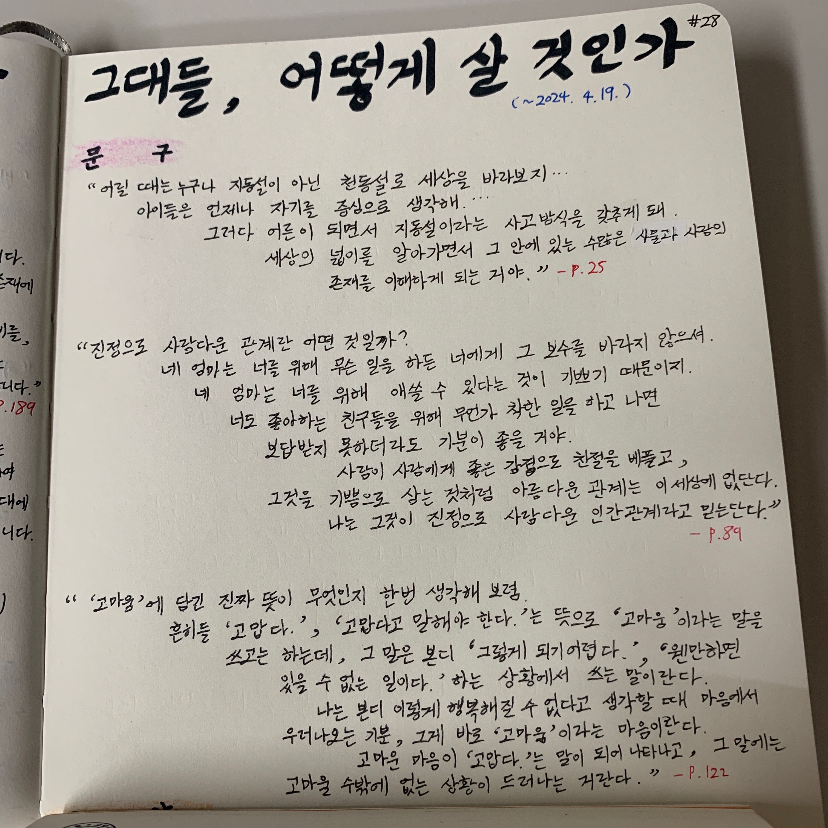 #28
그대들, 어떻게 살 것인가
(~2024. 4.19.)
문 구
"어릴 때는 누구나 지동설이 아닌 천동설로 세상을 바라보지...
아이들은 언제나 자기를 중심으로 생각해....
그러다 어른이 되면서 지동설이라는 사고방식을 갖추게 돼.
세상의 넓이를 알아가면서 그 안에 있는 수많은 사물과 사람의
존재를 이해하게 되는 거야." - P.25
"진정으로 사람다운 관계란 어떤 것일까?
네 엄마는 너를 위해 무슨 일을 하든 너에게 그 보수를 바라지 않으셔.
네 엄마는 너를 위해 애쓸 수 있다는 것이 기쁘기 때문이지.
너도 좋아하는 친구들을 위해 무언가 착한 일을 하고 나면
보답받지 못하더라도 기분이 좋을 거야.
사람이 사람에게 좋은 감정으로 친절을 베풀고,
그것을 기쁨으로 삼는 것처럼 아름다운 관계는 이 세상에 없단다.
나는 그것이 진정으로 사람다운 인간관계라고 믿는단다."
- P.89
"'고마움'에 담긴 진짜 뜻이 무엇인지 한번 생각해 보렴.
흔히들 '고맙다.', '고맙다고 말해야 한다.'는 뜻으로 '고마움'이라는 말을
쓰고는 하는데, 그 말은 본디 '그렇게 되기 어렵다.', '웬만하면
있을 수 없는 일이다.' 하는 상황에서 쓰는 말이란다.
나는 본디 이렇게 행복해질 수 없다고 생각할 때 마음에서
우러나오는 기분, 그게 바로 '고마움'이라는 마음이란다.
고마운 마음이 '고맙다.'는 말이 되어 나타나고, 그 말에는
고마울 수밖에 없는 상황이 드러나는 거란다." - P.122
니다."
P.189
대에
니다.